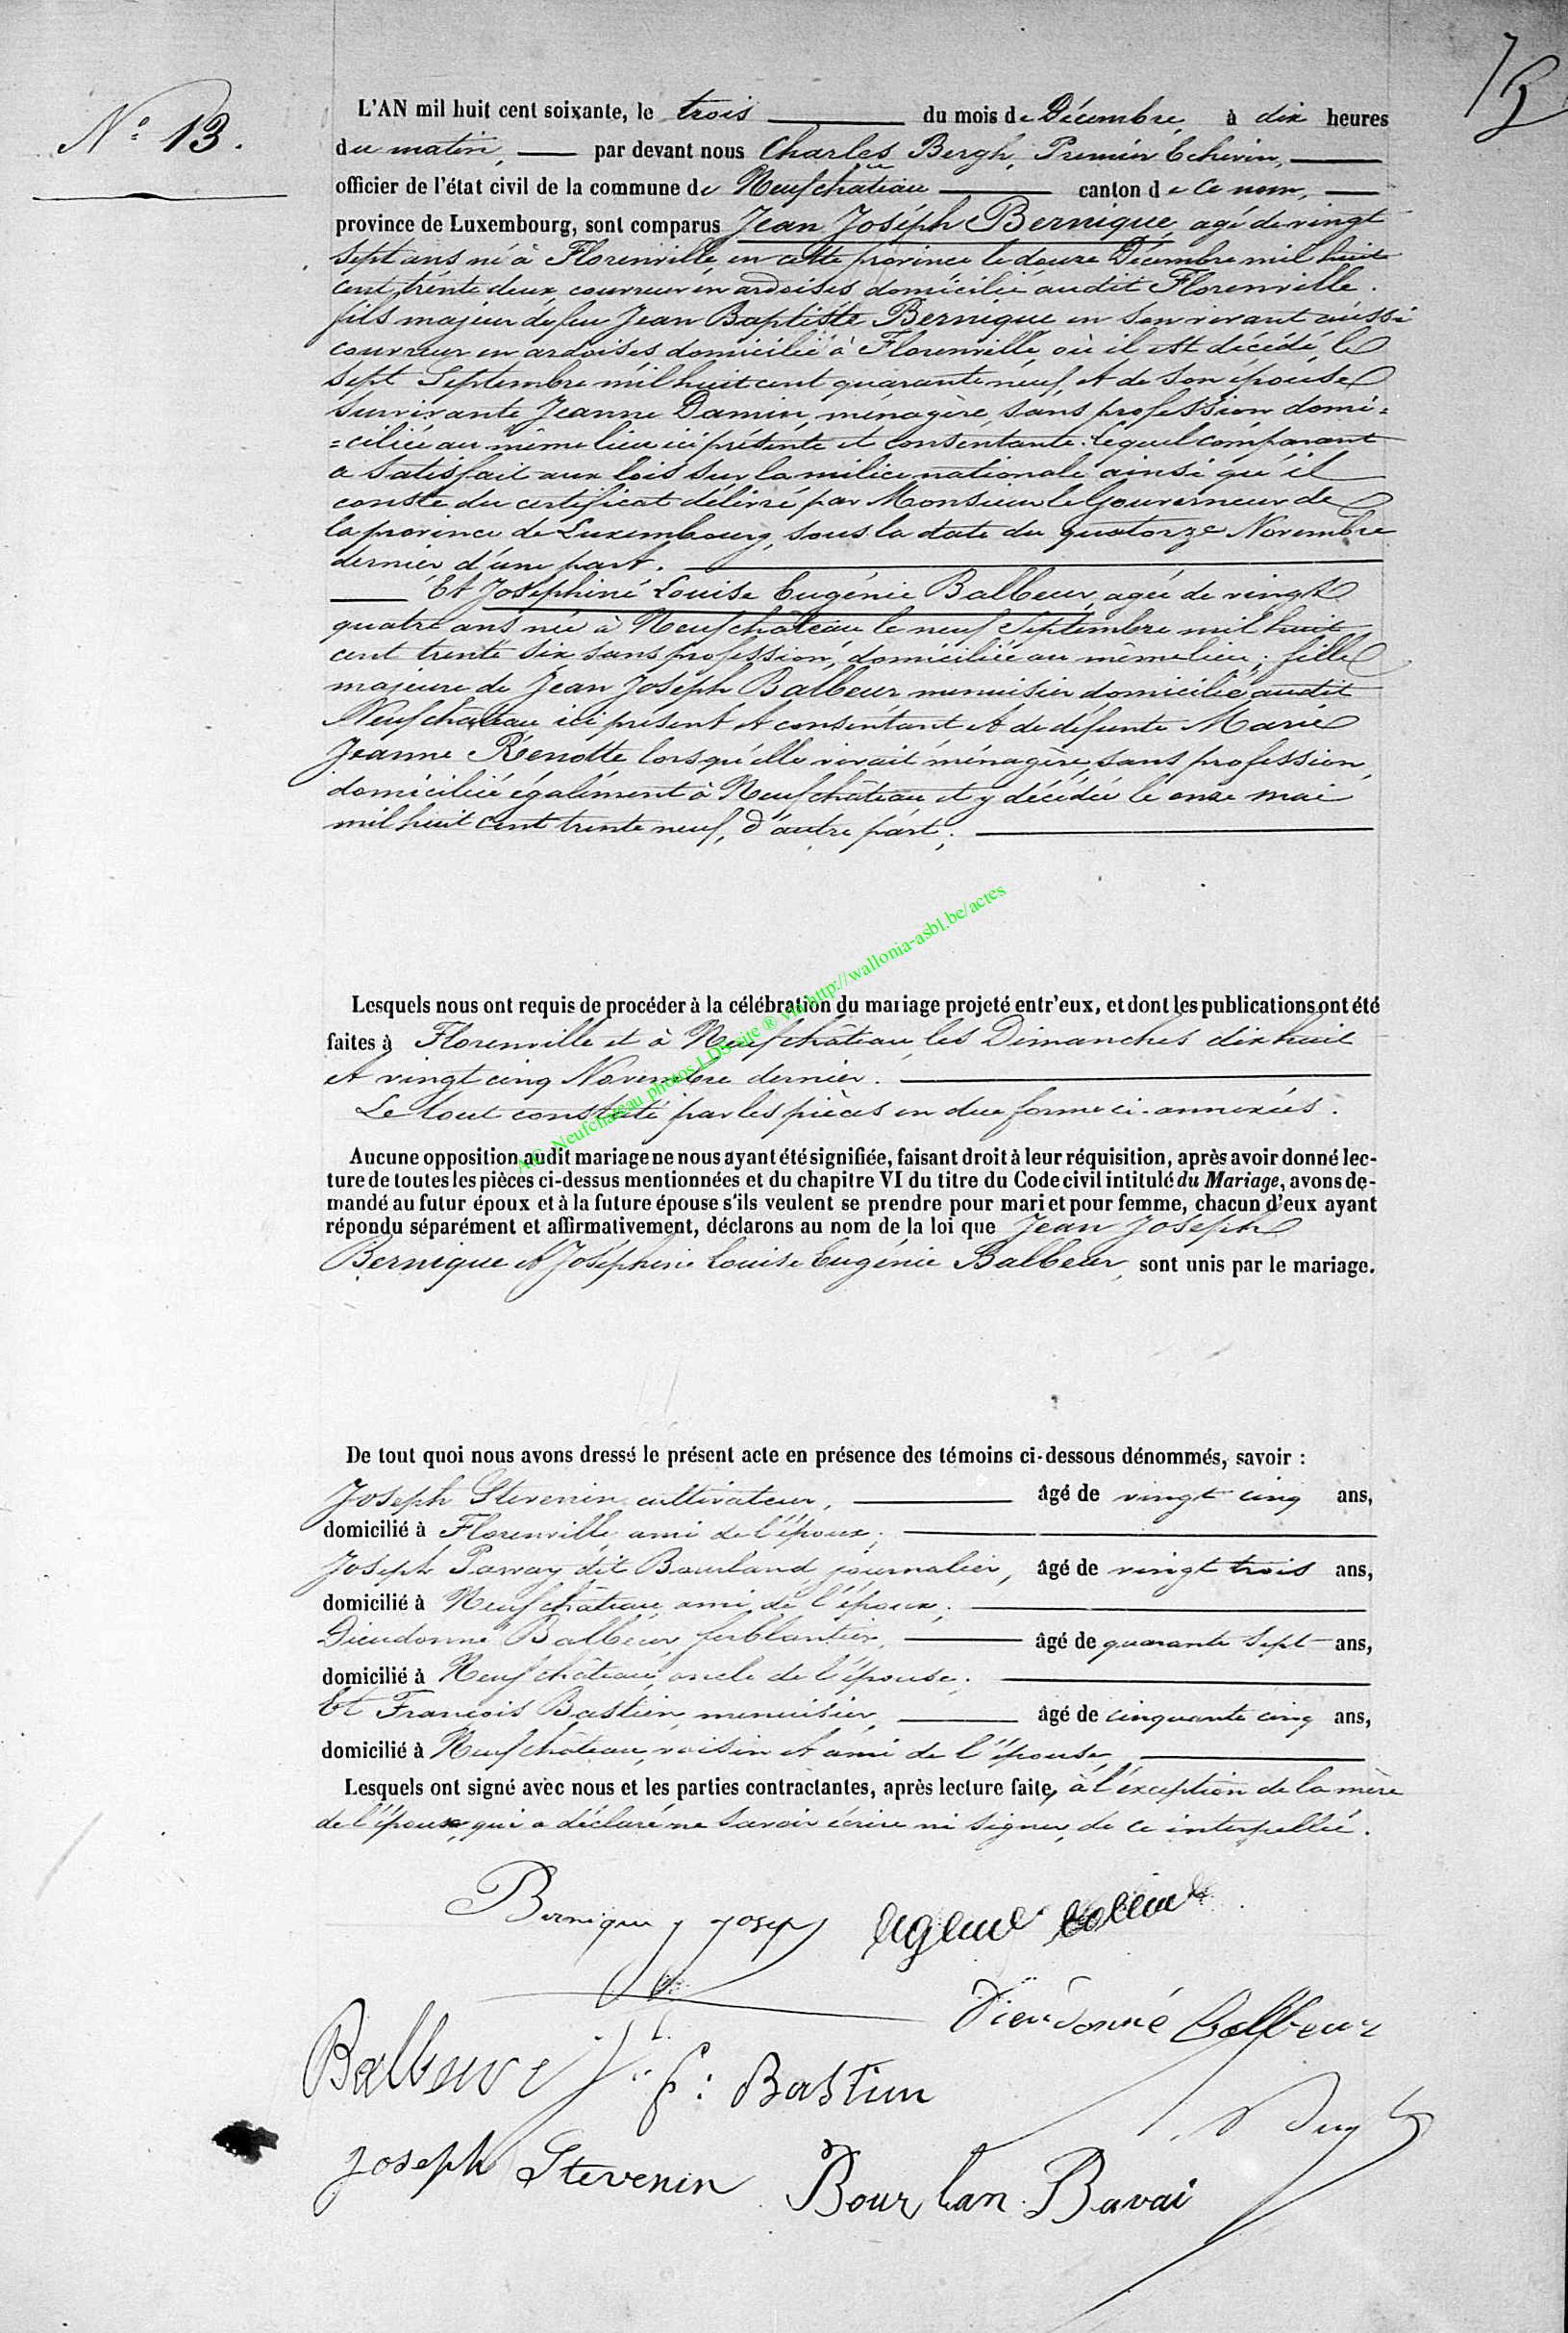 N° 13.
L'AN mil huit cent soixante, le trois du mois de Décembre, à dix heures
du matin, par devant nous Charles Bergh, Premier Echevin,
officier de l'état civil de la commune de Neufchateau canton de ce nom,
province de Luxembourg, sont comparus Jean Joséph Bernique, agé de vingt
sept ans né à Florenville, en cette province le douze Décembre mil huit
cent trente deux couvreur en ardoises domicilié audit Florenville.
fils majeur de feu Jean Baptiste Bernique en son vivant aussi
couvreur en ardoises domicilié à Florenville, où il est décédé, le
sept Septembre mil huit cent quarante neuf, et de son épouse
survivante Jeanne Damin, ménagère, sans profession domi=
=ciliée au même lieu ici présente et consentante. lequel comparant
a satisfait aux lois sur la milice nationale ainsi qu'il
conste du certificat délivré par Monsieur le Gouverneur de
la province de Luxembourg, sous la date du quatorze Novembre
dernier d'une part.
Et Joséphine Louise Eugénie Balbeur, agée de vingt
quatre ans née à Neufchâteau le neuf Septembre mil huit
cent trente six sans profession, domiciliée au même lieu; fille
majeure de Jean Joseph Balbeur menuisier domicilié audit
Neufchateau ici présent et consentant et de défunte Marie
Jeanne Rénotte, lorsqu'elle vivait ménagère, sans profession,
domiciliée également à Neufchâteau et y décédée le onze mai
mil huit cent trente neuf, d'autre part;
Lesquels nous ont requis de procéder à la célébration du mariage projeté entr'eux, et dont les publications ont été
faites à Florenville et à Neufchâteau, les Dimanches dix huit
et vingt cinq Novembre dernier.
Le tout constaté par les pièces en due forme ci-annexées.
A.C. Neufchateau photos LDS site ® via http://wallonia-asbl.be/actes
Aucune opposition audit mariage ne nous ayant été signifiée, faisant droit à leur réquisition, après avoir donné lec-
ture de toutes les pièces ci-dessus mentionnées et du chapitre VI du titre du Code civil intitulé du Mariage, avons de-
mandé au futur époux et à la future épouse s'ils veulent se prendre pour mari et pour femme, chacun d'eux ayant
répondu séparément et affirmativement, déclarons au nom de la loi que Jean Joseph
Bernique et Joséphine Louise Eugénie Balbeur, sont unis par le mariage.
De tout quoi nous avons dressé le présent acte en présence des témoins ci-dessous dénommés, savoir :
Joseph Stevenin cultivateur, âgé de vingt cinq ans,
domicilié à Florenville ami de l'époux;
Joseph Pavay dit Bourland, journalier, âgé de vingt trois ans,
domicilié à Neufchâteau, ami de l'époux;
Dieudonné Balbeur, ferblantier, âgé de quarante sept ans,
domicilié à Neufchâteau, oncle de l'épouse;
Et François Bastien, menuisier, âgé de cinquante cinq ans,
domicilié à Neufchâteau, voisin et ami de l'épouse,
Lesquels ont signé avec nous et les parties contractantes, après lecture faite, à l'exception de la mère
de l'époux, qui a déclaré ne savoir écrire ni signer, de ce interpellée.
Bernique J Joseph
Dieudonné Balbeur
Balbeur
F: Bastien
Joseph Stevenin Bourlan Bavai